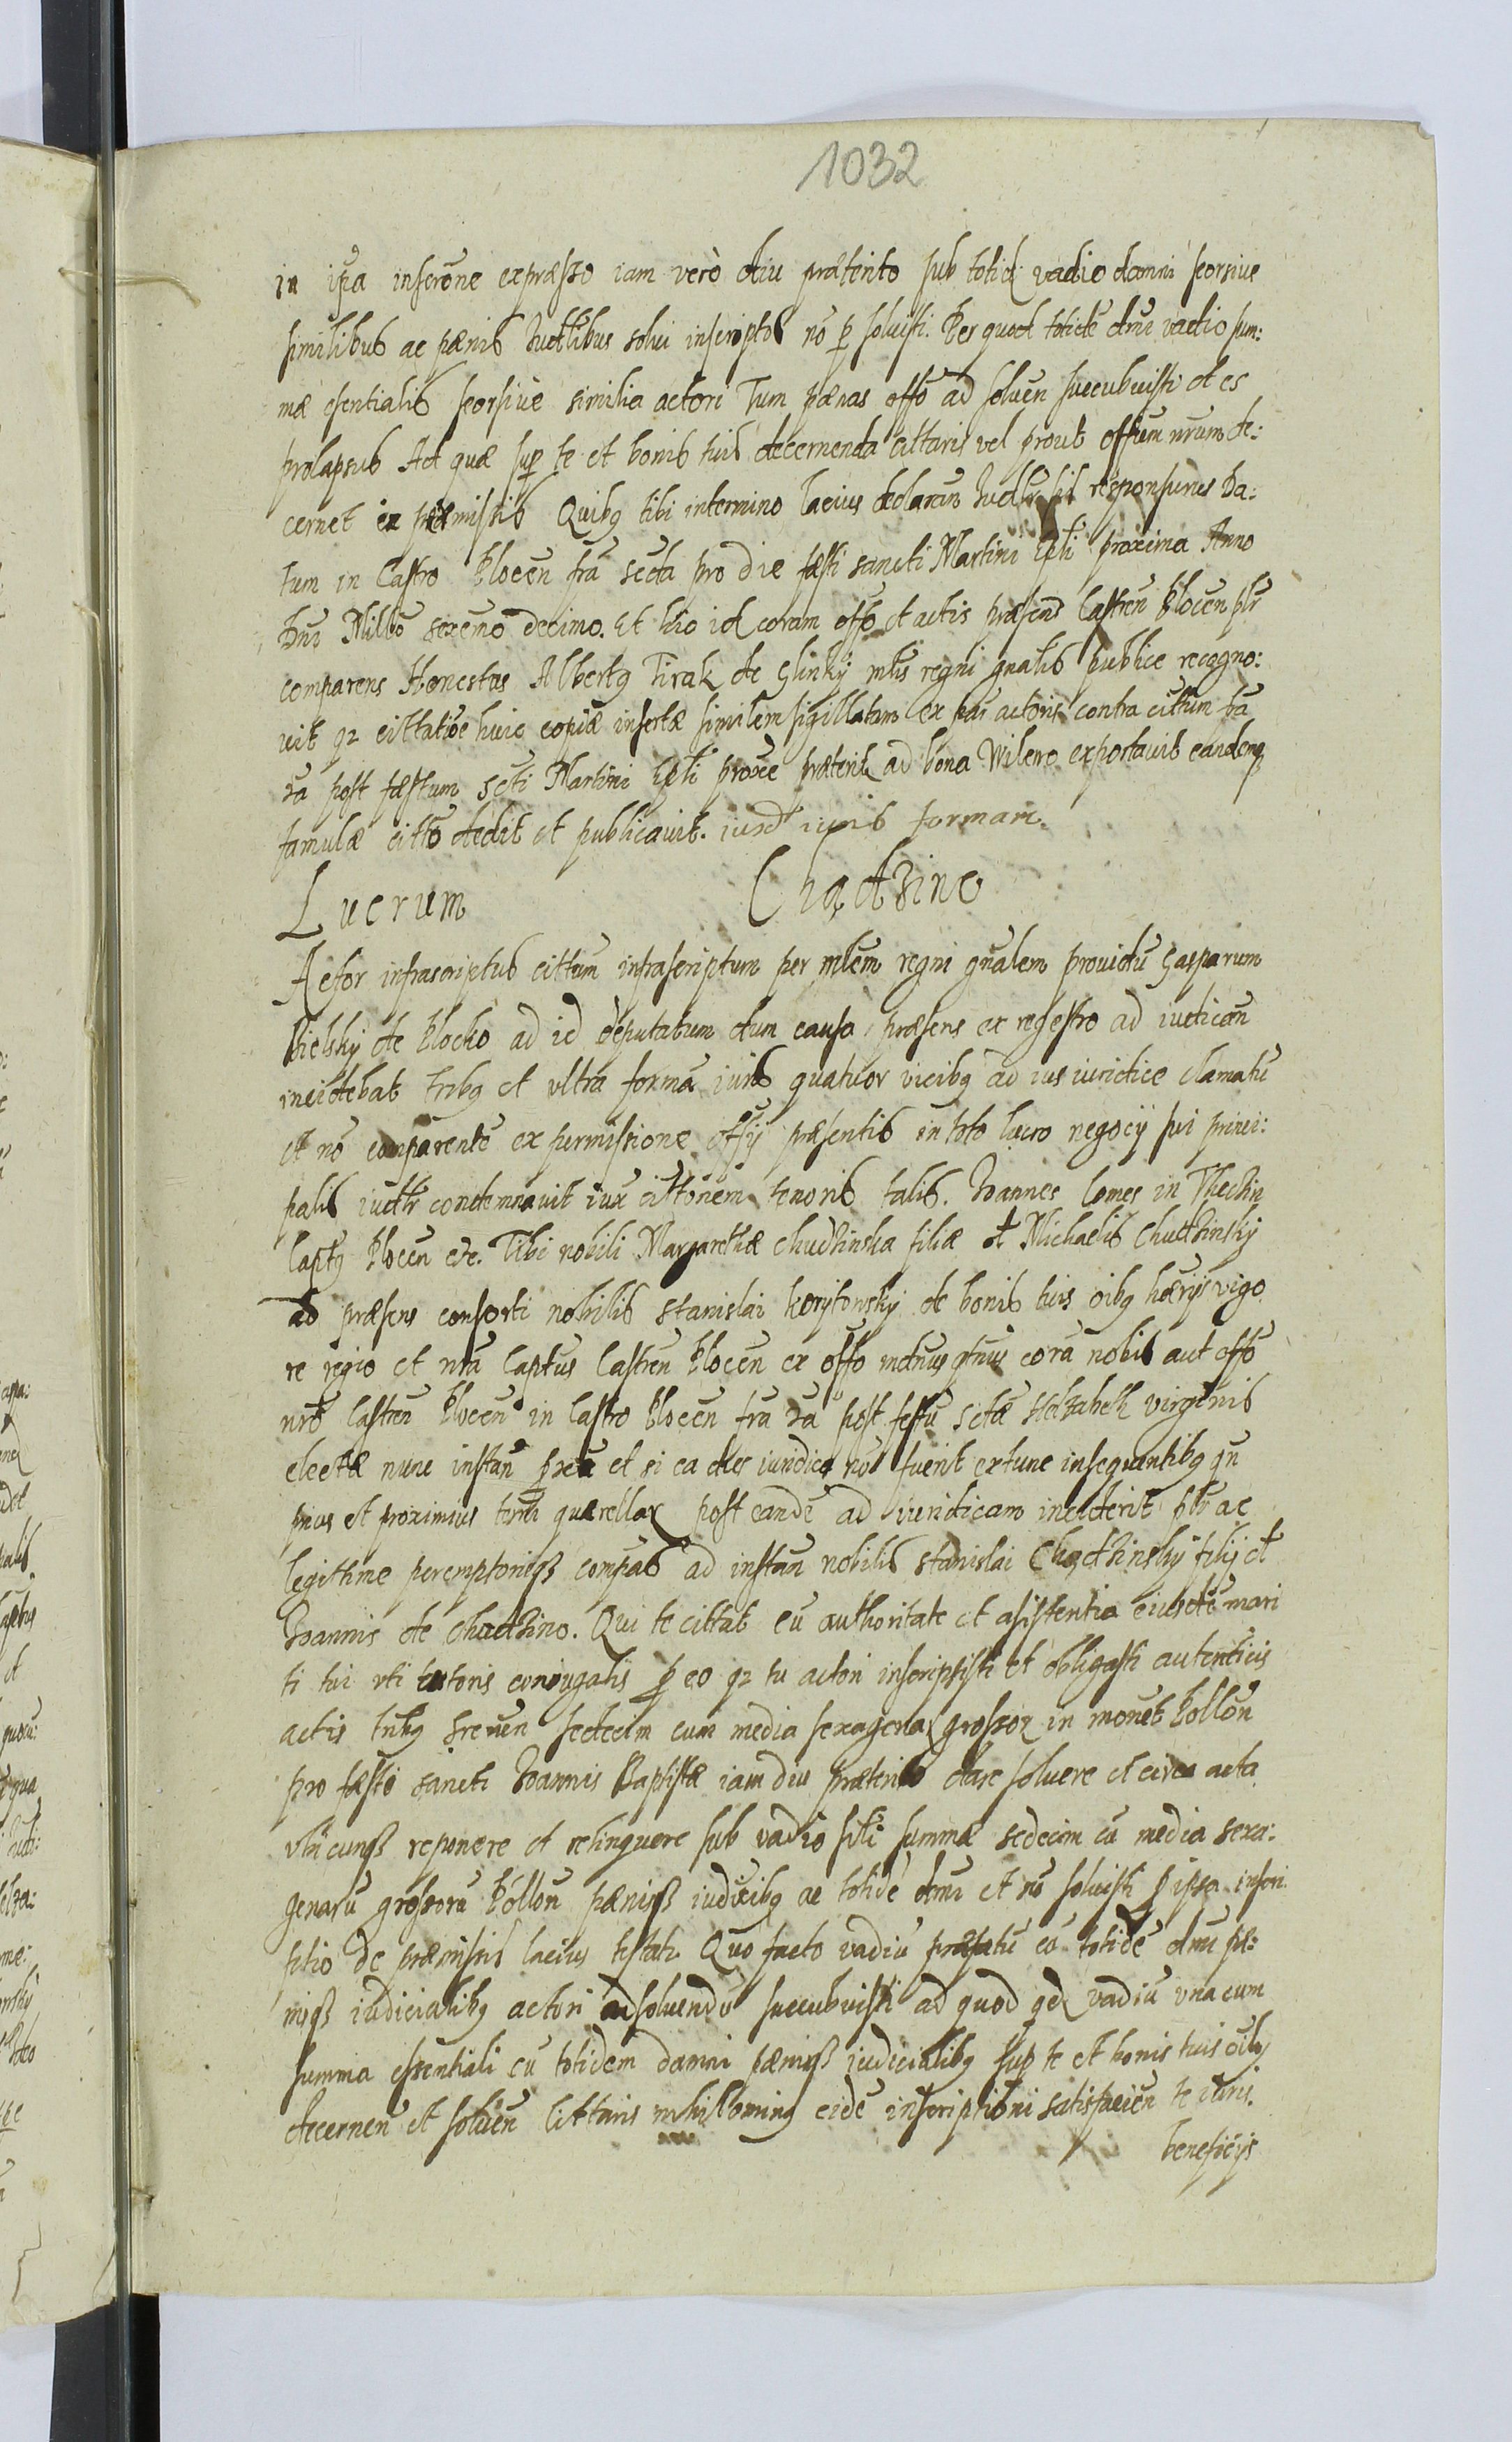 1032
in ipa inscrōne expræsso iam verò diu præterito sub totid vadio damni seorsive
similibus ac pænis Iudtlibus solvi inscriptos nō p solvisti. Per quod totidē dmi vadio sum:
mæ esentialis seorsive similia actori Tum pænas offō ad solven succubuisti et es
prolapsus Ad quæ sup te et bonis tuis decernenda cittaris vel prout offium nrum de:
cernet in præmissis Quibq tibi in termino lacius declaran Iudtr sis responsurus Da:
tum in Castro Plocen frā secda pro die fæsti sancti Martini Epti proxima Anno
Dni Millō sexcmō decimo. Et hic id coram offo et actis præsend Castren Plocen plr
comparens Honestus Albertq Tirak de Glinky mlis regni gnalis publice recogno:
vit qz cittatiōe huic copiæ insertæ similem sigillatam ex pār actoris contra cittum fā
2ā post fæstum scti Martini Epti proxe præterit ad bona Wilero exportavit eandemq
famulæ cittō dedit et publicavit. iuxt iuris formam.
Lucrum Chądzino
Actor infrascriptus cittum infrascriptum per mlem regni gnalem providū Gasparum
Bielsky de Plocko ad id deputatum dum causa præsens ex regestro ad iudican
incidebat tribq et ultra formā iuris quatuor vicibq ad ius iuridice clamatū
et nō comparentē ex permissione offij præsentis in toto lucro negocij sui princi:
palis iudtr condemnavit iux cittonem tenoris talis. Ioannes Comes in Theczin
Captq Plocen etc. Tibi nobili Margarethæ Chudzinska filiæ ol Michaelis Chudzinsky
ad præsens consorti nobilis Stanislai Korytowsky de bonis tuis oibq hærijs vigo
re regio et nrā Captus Castren Plocen ex offo mdmus qtnus corā nobis aut offō
nrō Castren Plocen in Castro Plocen frā 2ā post festū sctæ Helzabeth virginis
electæ nunc instan proxa et si ea dies iuridica nō fuerit extunc insequentibq qn
prius et proximius termi quærellar post eandē ad iuridicam inciderit plr ac
legitime peremptorieqz compas ad instan nobilis Stanislai Chądzinsky filij ol
Ioannis de Chudzino. Qui te cittat cū authoritate et asistentia eiusdē mari
ti tui uti tutoris coniugalis p eo qz tu actori inscripsisti et obligasti autenticis
actis tribq sedecim cum media sexagena grossor in monet Pollon
pro fæsto sancti Ioannis Baptistæ iam diu præterito dare solvere et circa acta
ubicunqz reponere et relinquere sub vadio sitī summæ sedecim cū media sexa:
genarū grossorū Pollon pænisqz iudicibq ac totidē dmi et nō solvisti p ipsa inscri
ptio de præmissis lacius testatr Quo facto vadiū præfatū cū totidē dmi pæ:
nisqz iudicialibq actori ad solvendū succubuisti ad quod qd vadiū una cum
summa essentiali cū totidem damni pænisqz iudicialibq sup te et bonis tuis oibq
decernen et solven cittaris nihilominq eidē inscriptioni satisfacien te iuris.
beneficijs